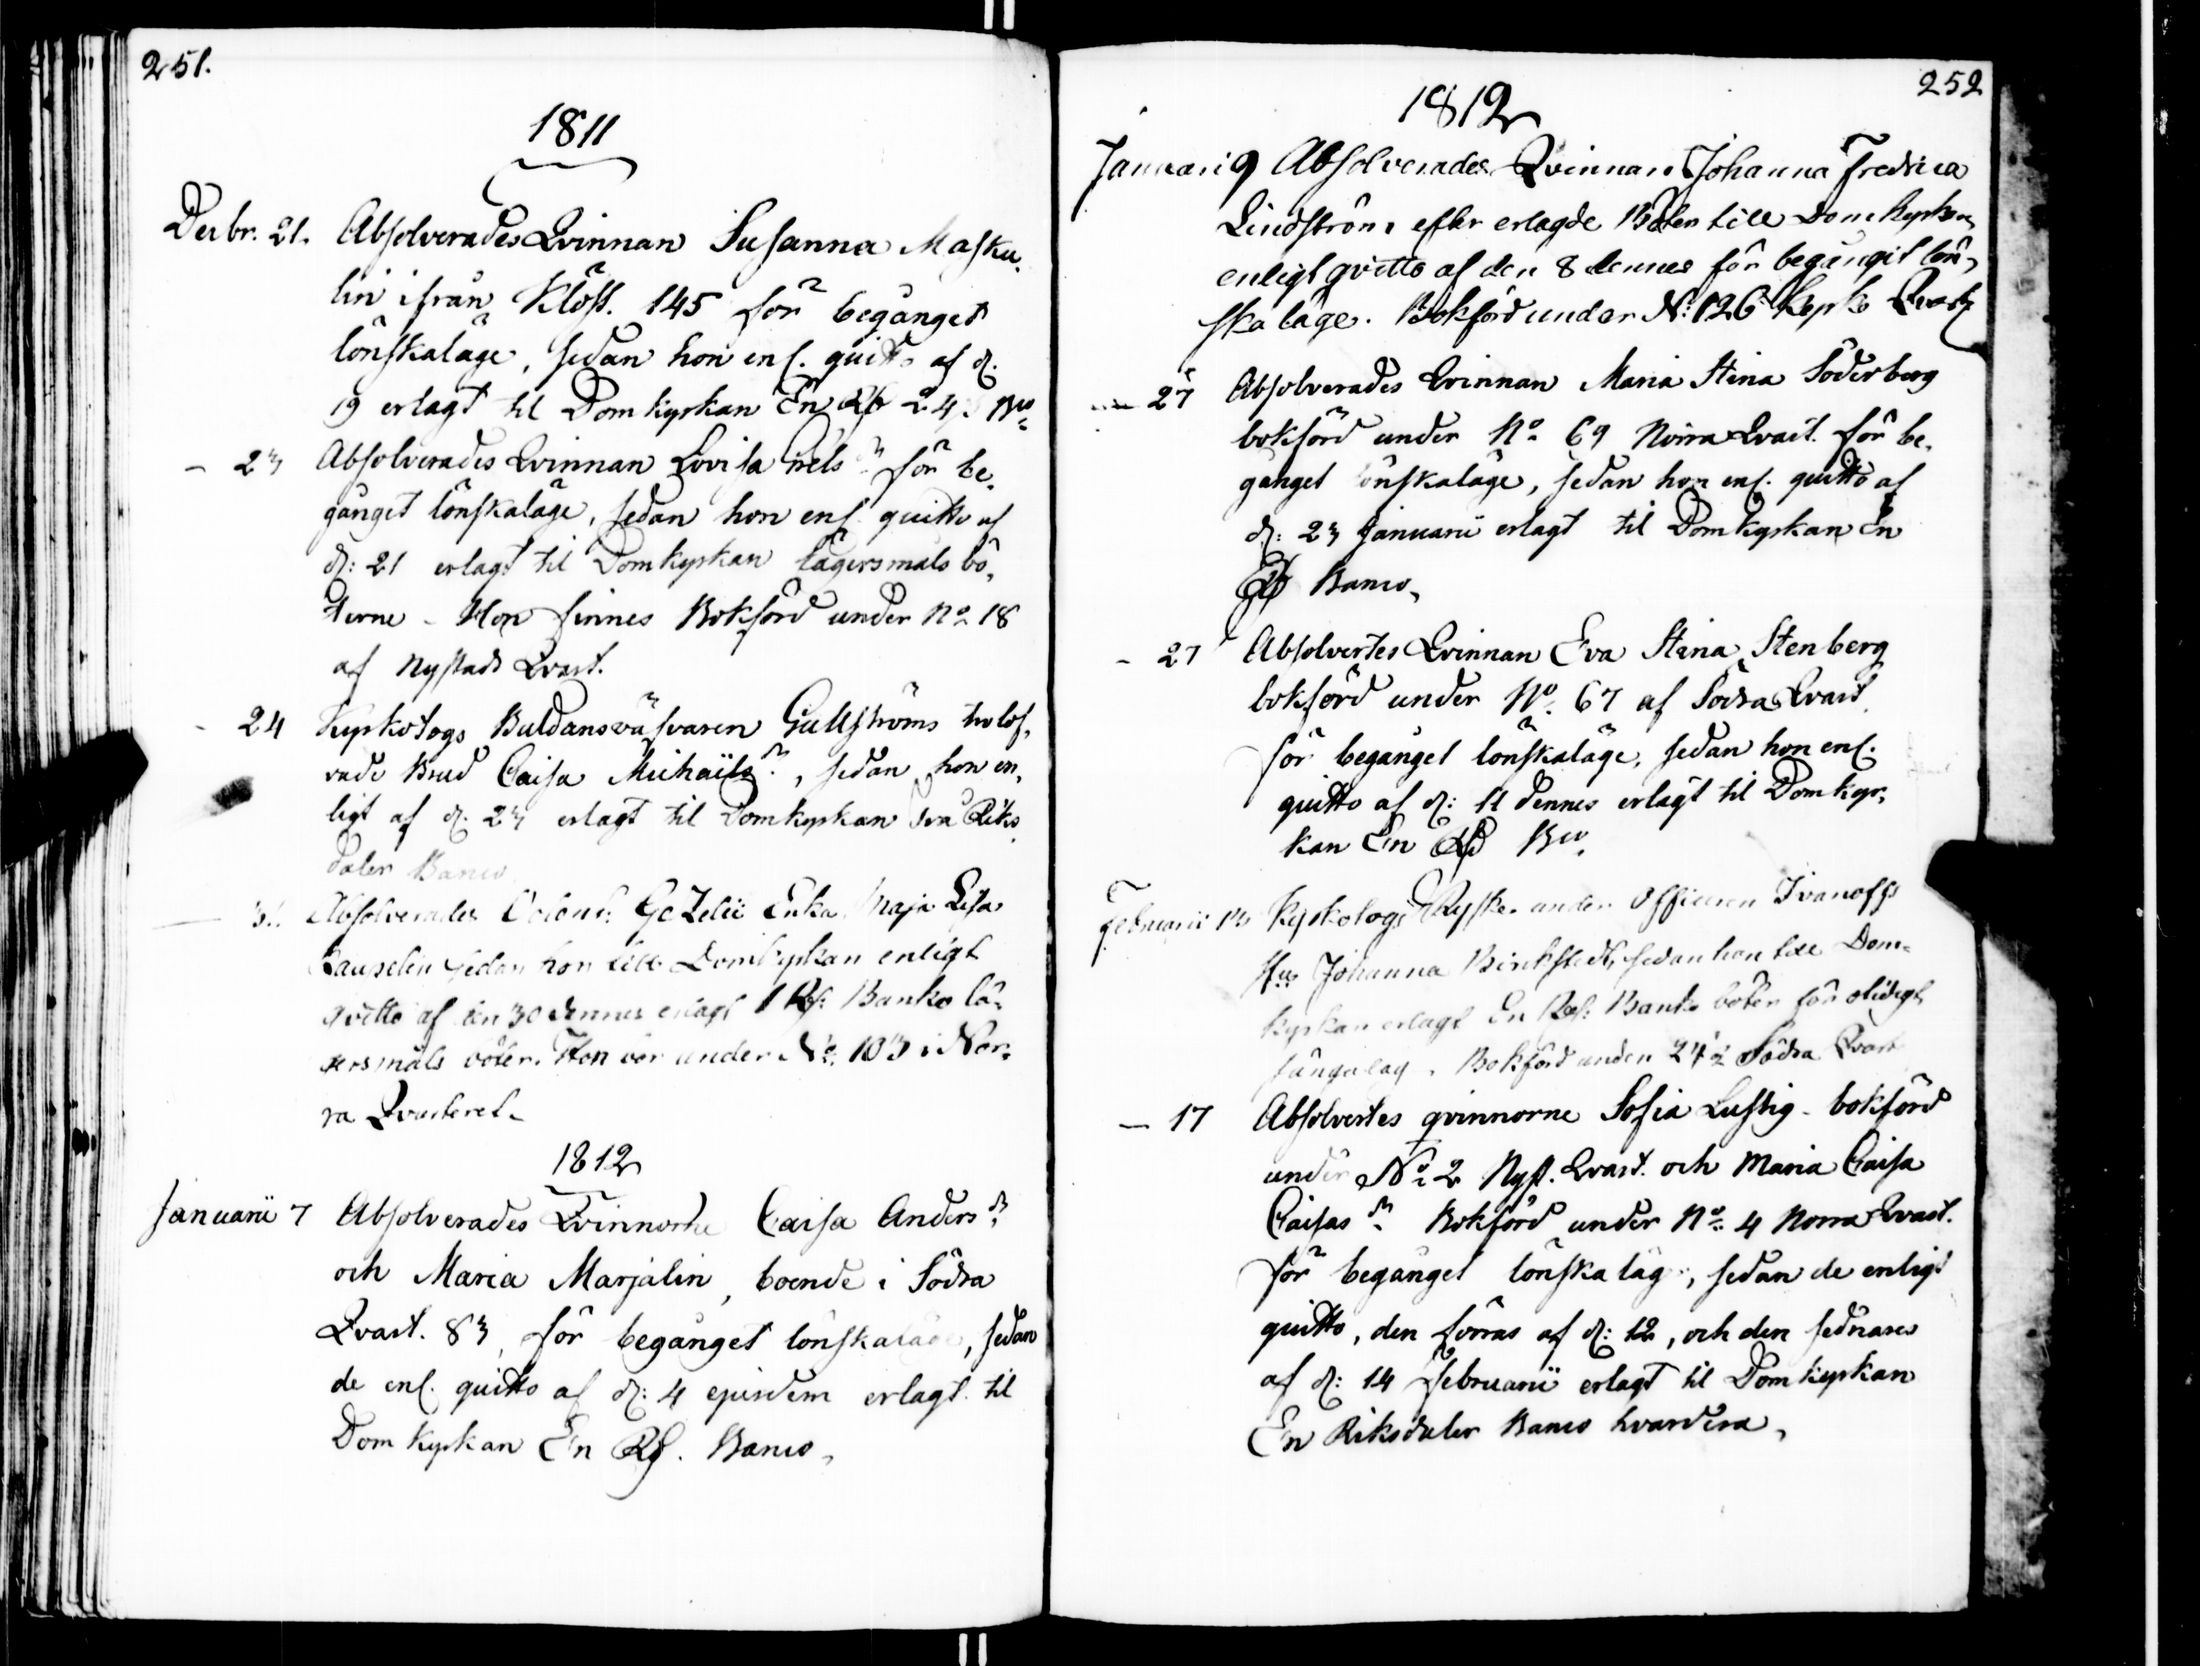 251.
1811
Decbr. 21. Absolverades Qvinnan Susanna Masku-
lin ifrån Klost. 145 för begånget
lönskaläge, sedan hon enl. quitto af d:
19 erlagt til Domkyrkan En Rd 24 s Bco
— 23 Absolverades Qvinnan Lovisa Nils dr för be-
gånget lönskaläge, sedan hon enl. quitto af
d: 21 erlagt til Domkyrkan lägersmåls bö-
terne - Hon finnes Bokförd under No 18
af Nystads Qvart.
- 24 Kyrkotogs Buldansväfvaren Gullströms trolof-
vade Brud Caisa Michaels dr, sedan hon en-
ligt af d. 23 erlagt til Domkyrkan två Riks
daler Banco
— 31. Absolverades Enka Maja Lisa
sedan hon till Domkyrkan enligt
qvitto af den 30 dennes erlagt 1 Rd: Banko lä-
gersmåls böter. Hon bor under No 103 i Nor-
ra Qvarteret.
1812
Januarii 7 Absolverades Qvinnorne Caisa Anders dr
och Maria Marjalin, boende i Södra
Qvart. 83, för begånget lönskaläge, sedan
de enl. quitto af d: 4 ejusdem erlagt til
Domkyrkan En Rd. Banco,
252
1812
Januari 9 Absolverades Qvinnan Johanna Fredrica
Lindström efter erlagde Böter till Domkyrkan
enligt qvitto af den 8 dennes för begångit lön-
ska läge. Bokförd under No: 126 Kyrko Qvart
— 25 Absolverades Qvinnan Maria Stina Söderberg
bokförd under No 69 Norra Qvart. för be-
gånget lönskaläge, sedan hon enl. quitto af
d: 23 Januarii erlagt til Domkyrkan En
Rd Banco,
- 27 Absolvertes Qvinnan Eva Stina Stenberg
bokförd under No. 67 af Södra Qvart.
för begånget lönskaläge, sedan hon enl.
quitto af d: 11 dennes erlagt til Domkyr-
kan En Rd Bco.
Februarii 13 Kyrkotogs Ryske under Officeren Ivanoffs
Hu: Johanna Birckstedt, sedan hon till Dom-
kyrkan erlagt En Rd: Banko böter för otidigt
sängalag. Bokförd under 24½ Södra Qvart
— 17 Absolvertes qvinnorne Sofia Lustig - bokförd
under No 2 Nyst. Qvart. och Maria Caisa
Caisas dr Bokförd under No. 4 Norra Qvart.
för begånget lönska läge, sedan de enligt
quitto, den förras af d: 12, och den sednares
af d: 14 Februarii erlagt til Domkyrkan
En Riksdaler Banco hvardera,